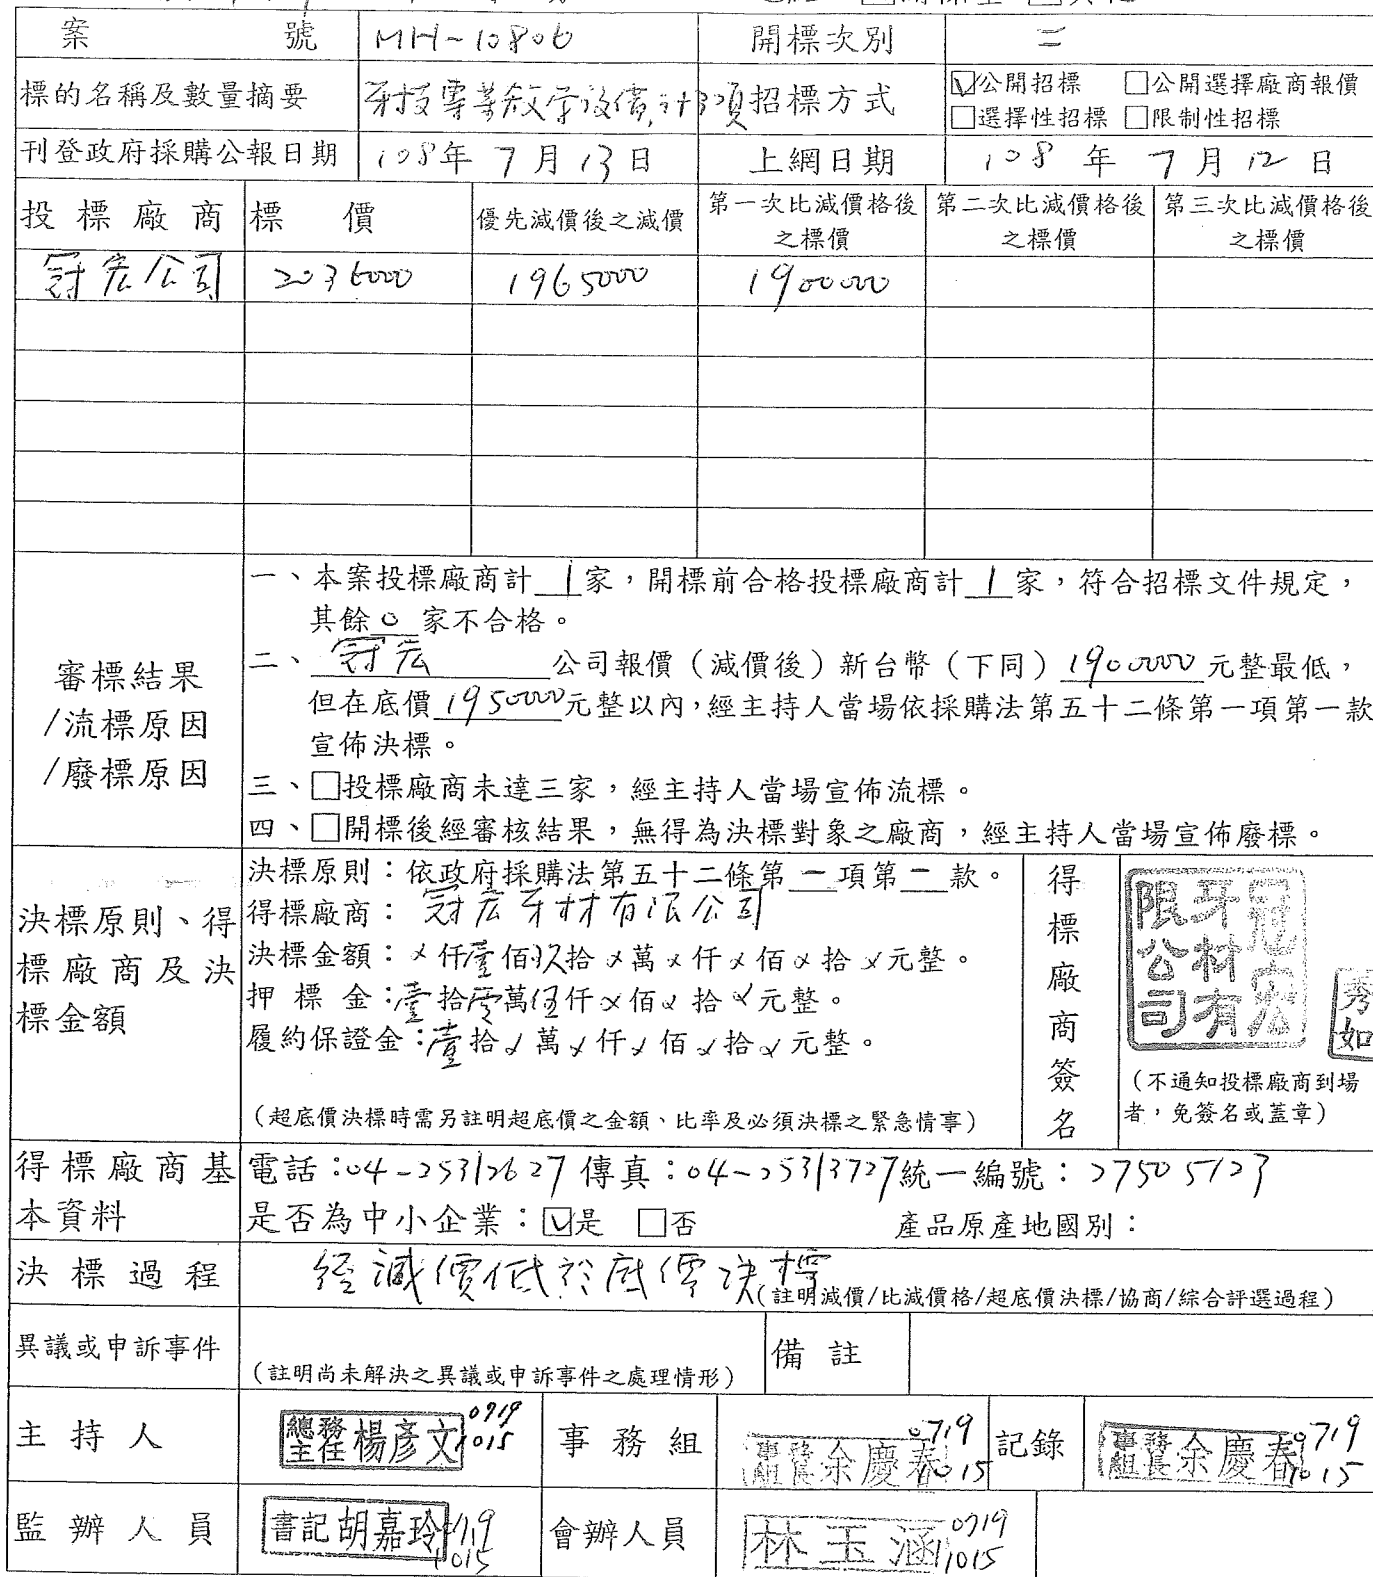 案號 MH-10806 開標次別 二
標的名稱及數量摘要 牙技專業教學設備,計3項 招標方式 ☑公開招標 □公開選擇廠商報價
□選擇性招標 □限制性招標
刊登政府採購公報日期 108年 7月 13日 上網日期 108 年 7 月 12 日
投標廠商 標價 優先減價後之減價 第一次比減價格後之標價 第二次比減價格後之標價 第三次比減價格後之標價
冠宏公司 2036000 1965000 1900000
審標結果
/流標原因
/廢標原因
一、本案投標廠商計 1 家,開標前合格投標廠商計 1 家,符合招標文件規定,
其餘 0 家不合格。
二、 冠宏 公司報價(減價後)新台幣(下同) 1900000 元整最低,
但在底價 1950000 元整以內,經主持人當場依採購法第五十二條第一項第一款
宣佈決標。
三、□投標廠商未達三家,經主持人當場宣佈流標。
四、□開標後經審核結果,無得為決標對象之廠商,經主持人當場宣佈廢標。
決標原則、得標廠商及決標金額
決標原則:依政府採購法第五十二條第 一 項第 一 款。
得標廠商: 冠宏牙材有限公司
決標金額:×仟壹佰玖拾×萬×仟×佰×拾×元整。
押標金:壹拾零萬伍仟×佰×拾×元整。
履約保證金:壹拾×萬×仟×佰×拾×元整。
(超底價決標時需另註明超底價之金額、比率及必須決標之緊急情事)
得標廠商簽名
冠宏牙材有限公司
秀如
(不通知投標廠商到場
者,免簽名或蓋章)
得標廠商基本資料
電話:04-25312627 傳真:04-25313727 統一編號:27505123
是否為中小企業:☑是 □否 產品原產地國別:
決標過程 經減價低於底價決標 (註明減價/比減價格/超底價決標/協商/綜合評選過程)
異議或申訴事件 (註明尚未解決之異議或申訴事件之處理情形) 備註
主持人 總務主任 楊彥文 0719 1015 事務組 事務組長 余慶春 0719 1015 記錄 事務組長 余慶春 0719 1015
監辦人員 書記 胡嘉玲 0719 1015 會辦人員 林玉涵 0719 1015